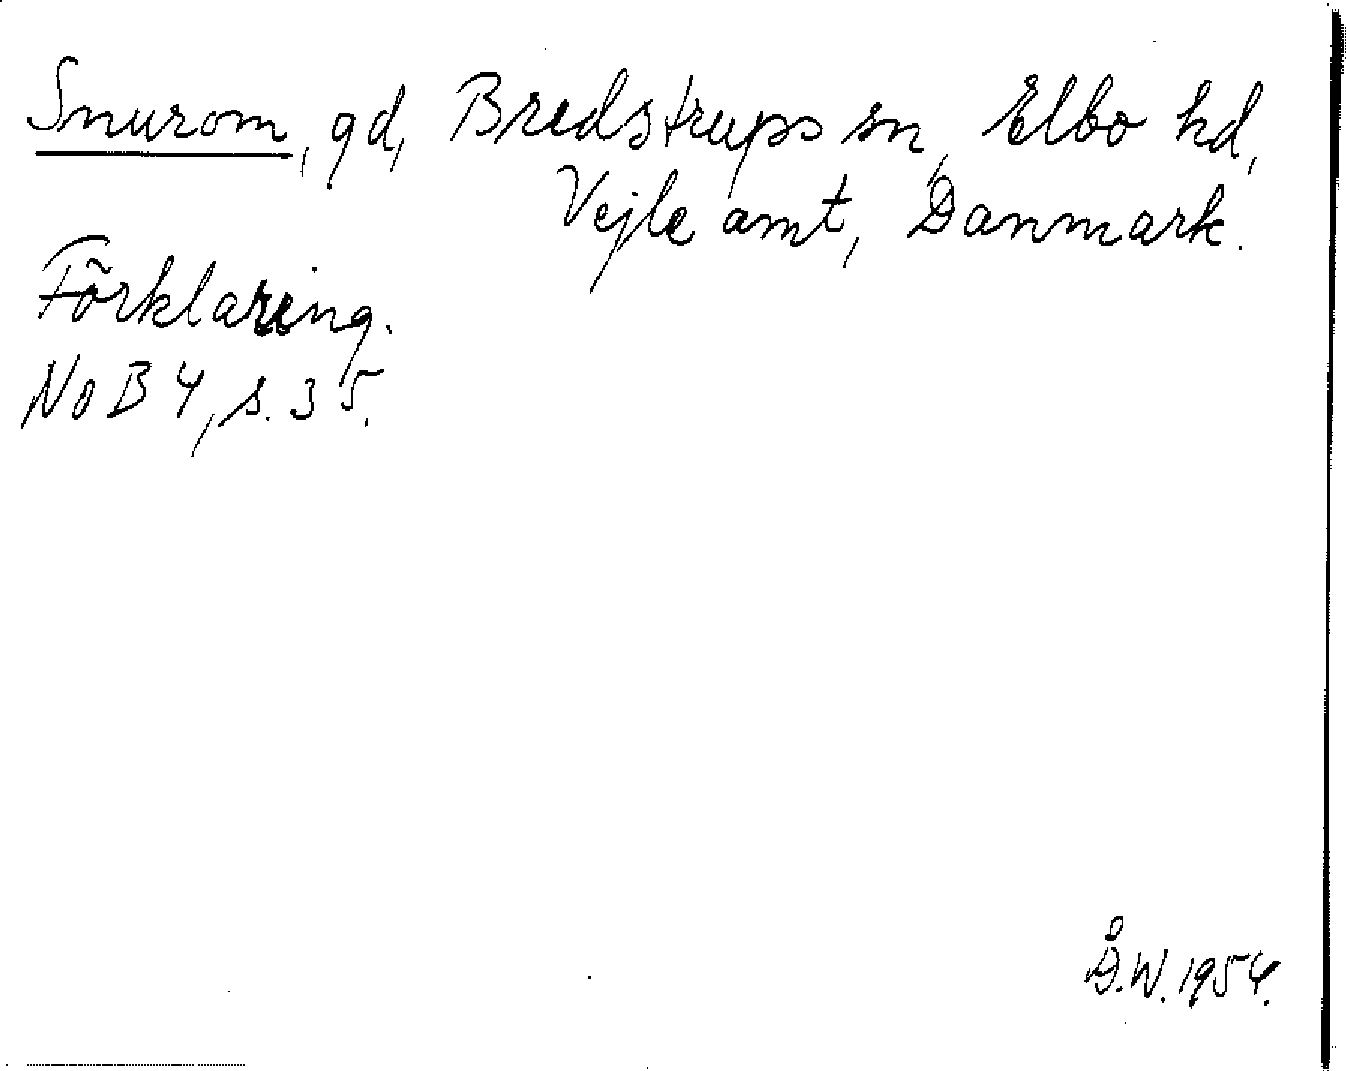 Snurom, gd, Bredstrups sn, Elbo hd,
Vejle amt, Danmark.
Förklaring.
NoB 4, s. 35.
Å.W. 1954.